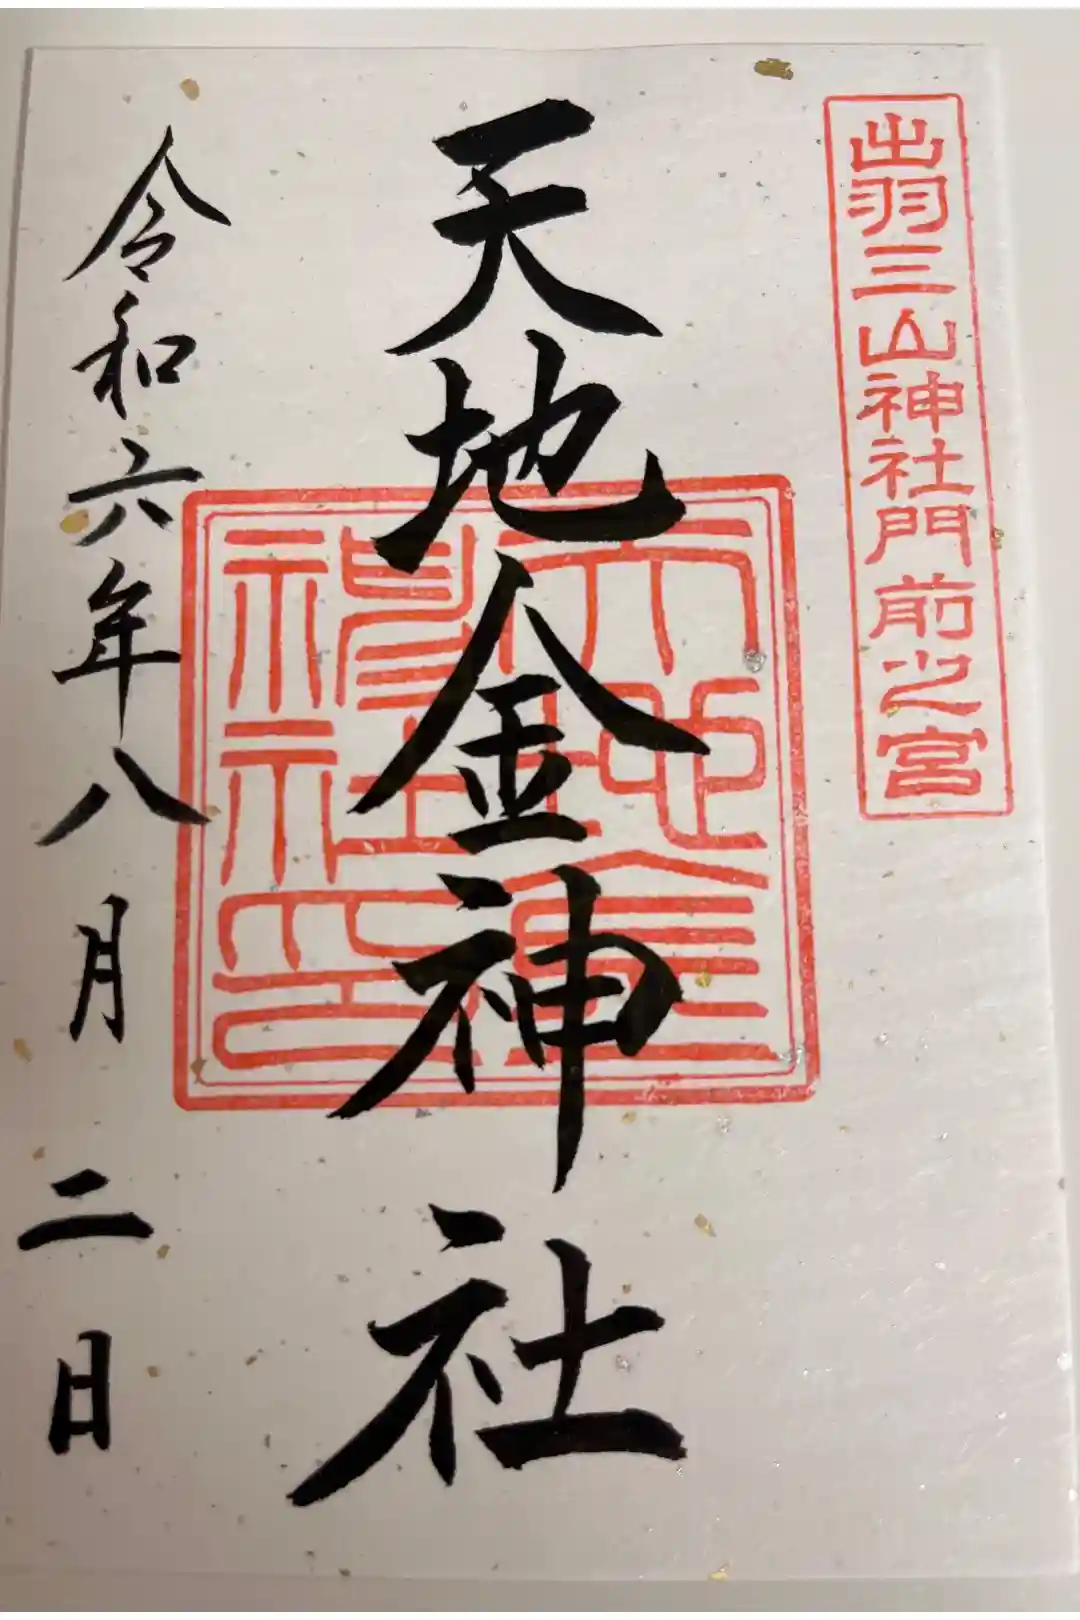 出羽三山神社門前之宮
天地金神社
天地金
神社印
令和六年八月二日